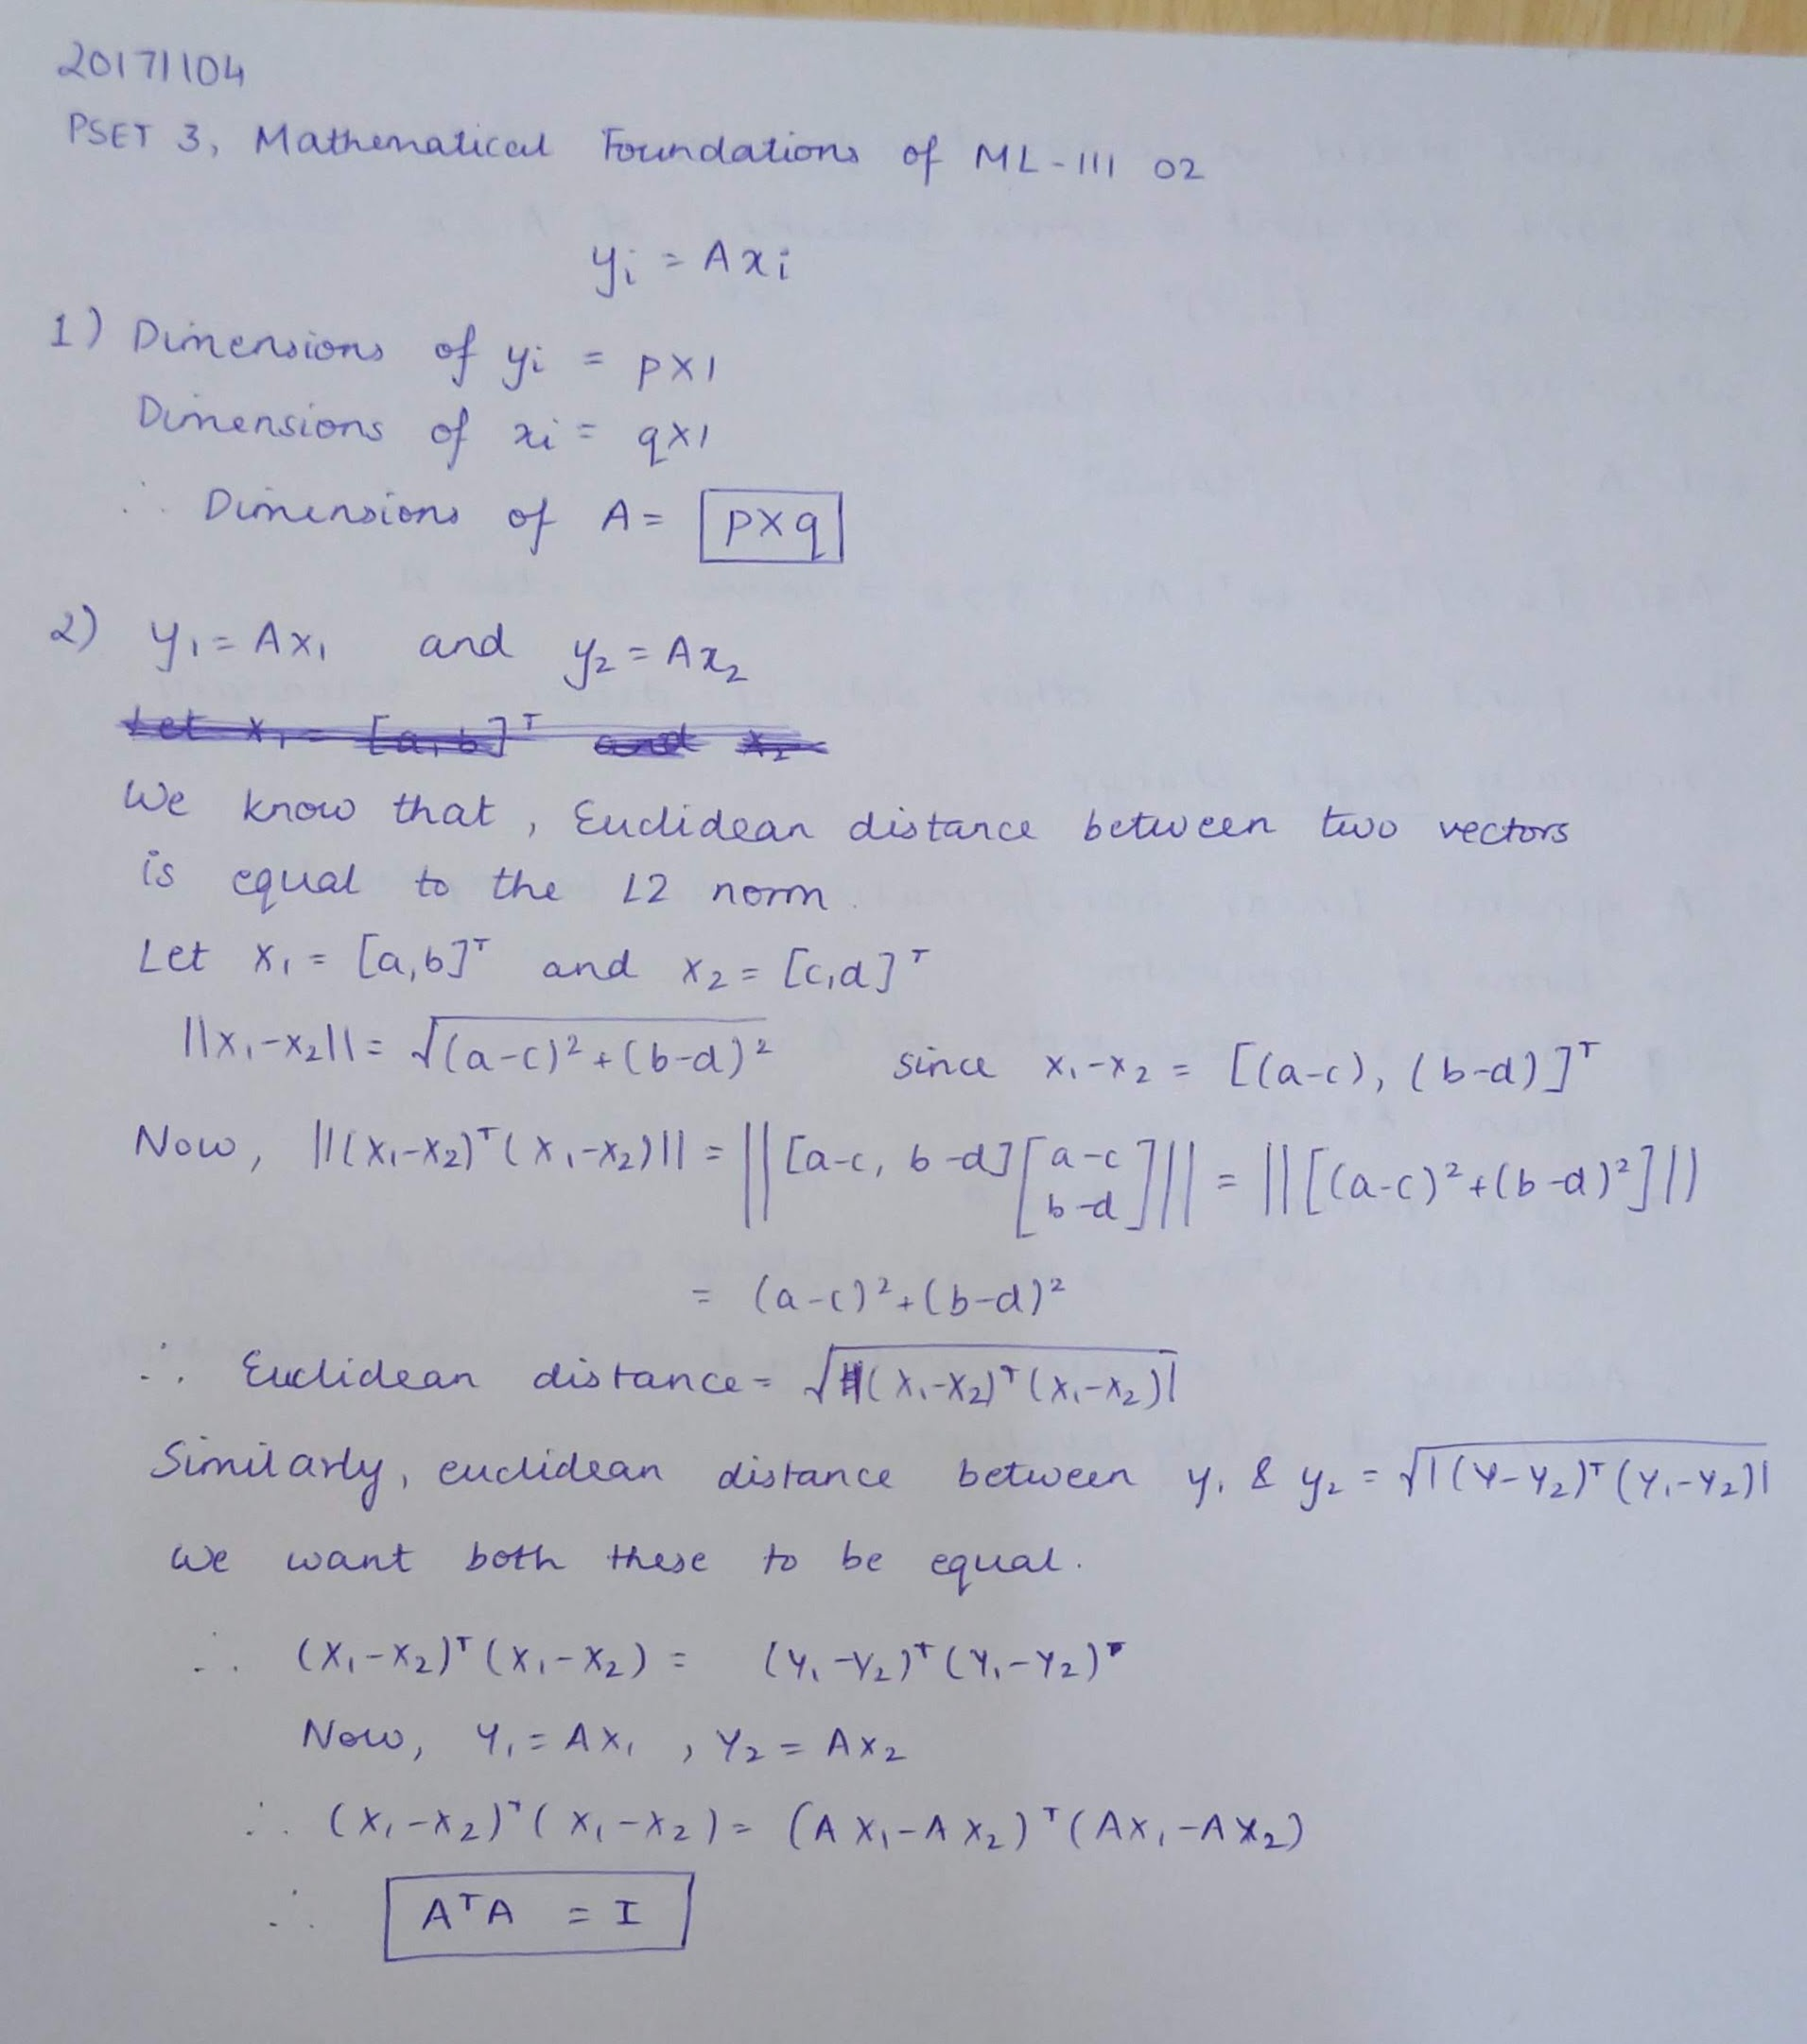 20171104
PSET 3, Mathematical Foundations of ML-III 02
yi = Axi
1) Dimensions of yi = p×1
Dimensions of xi = q×1
∴ Dimensions of A = p×q
2) y₁ = Ax₁ and y₂ = Ax₂
Let x₁ = [a,b]ᵀ and x₂
We know that, Euclidean distance between two vectors
is equal to the L2 norm.
Let x₁ = [a,b]ᵀ and x₂ = [c,d]ᵀ
||x₁-x₂|| = √((a-c)²+(b-d)²) since x₁-x₂ = [(a-c), (b-d)]ᵀ
Now, ||(x₁-x₂)ᵀ(x₁-x₂)|| = ||[a-c, b-d][a-c b-d]|| = ||[(a-c)²+(b-d)²]||
= (a-c)²+(b-d)²
∴ Euclidean distance = √|(x₁-x₂)ᵀ(x₁-x₂)|
Similarly, euclidean distance between y₁ & y₂ = √|(y-y₂)ᵀ(y₁-y₂)|
We want both these to be equal.
∴ (x₁-x₂)ᵀ(x₁-x₂) = (y₁-y₂)ᵀ(y₁-y₂)ᵀ
Now, y₁ = Ax₁ , y₂ = Ax₂
∴ (x₁-x₂)ᵀ(x₁-x₂) = (Ax₁-Ax₂)ᵀ(Ax₁-Ax₂)
∴ AᵀA = I